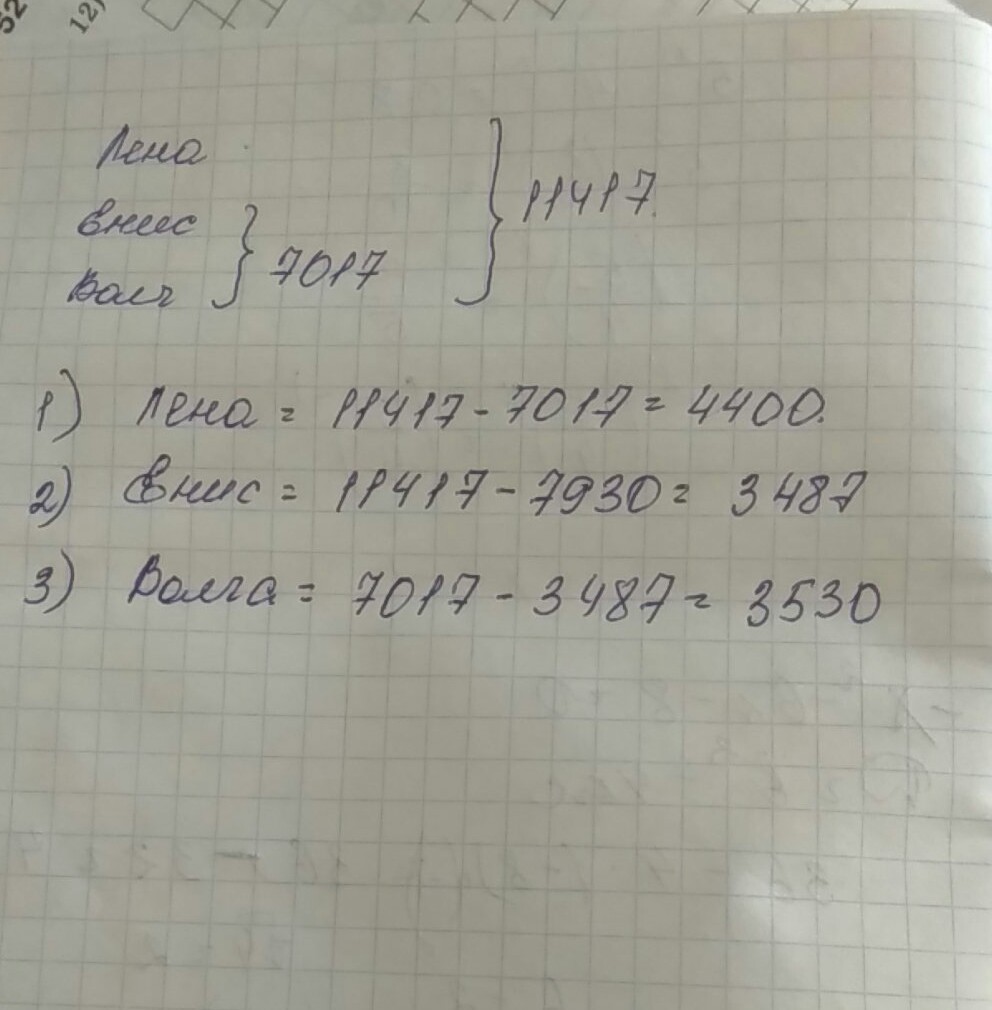 52
12)
Лена
Енис
Волг
} 7017
} 11417
1) Лена = 11417 - 7017 = 4400.
2) Енис = 11417 - 7930 = 3487
3) Волга = 7017 - 3487 = 3530